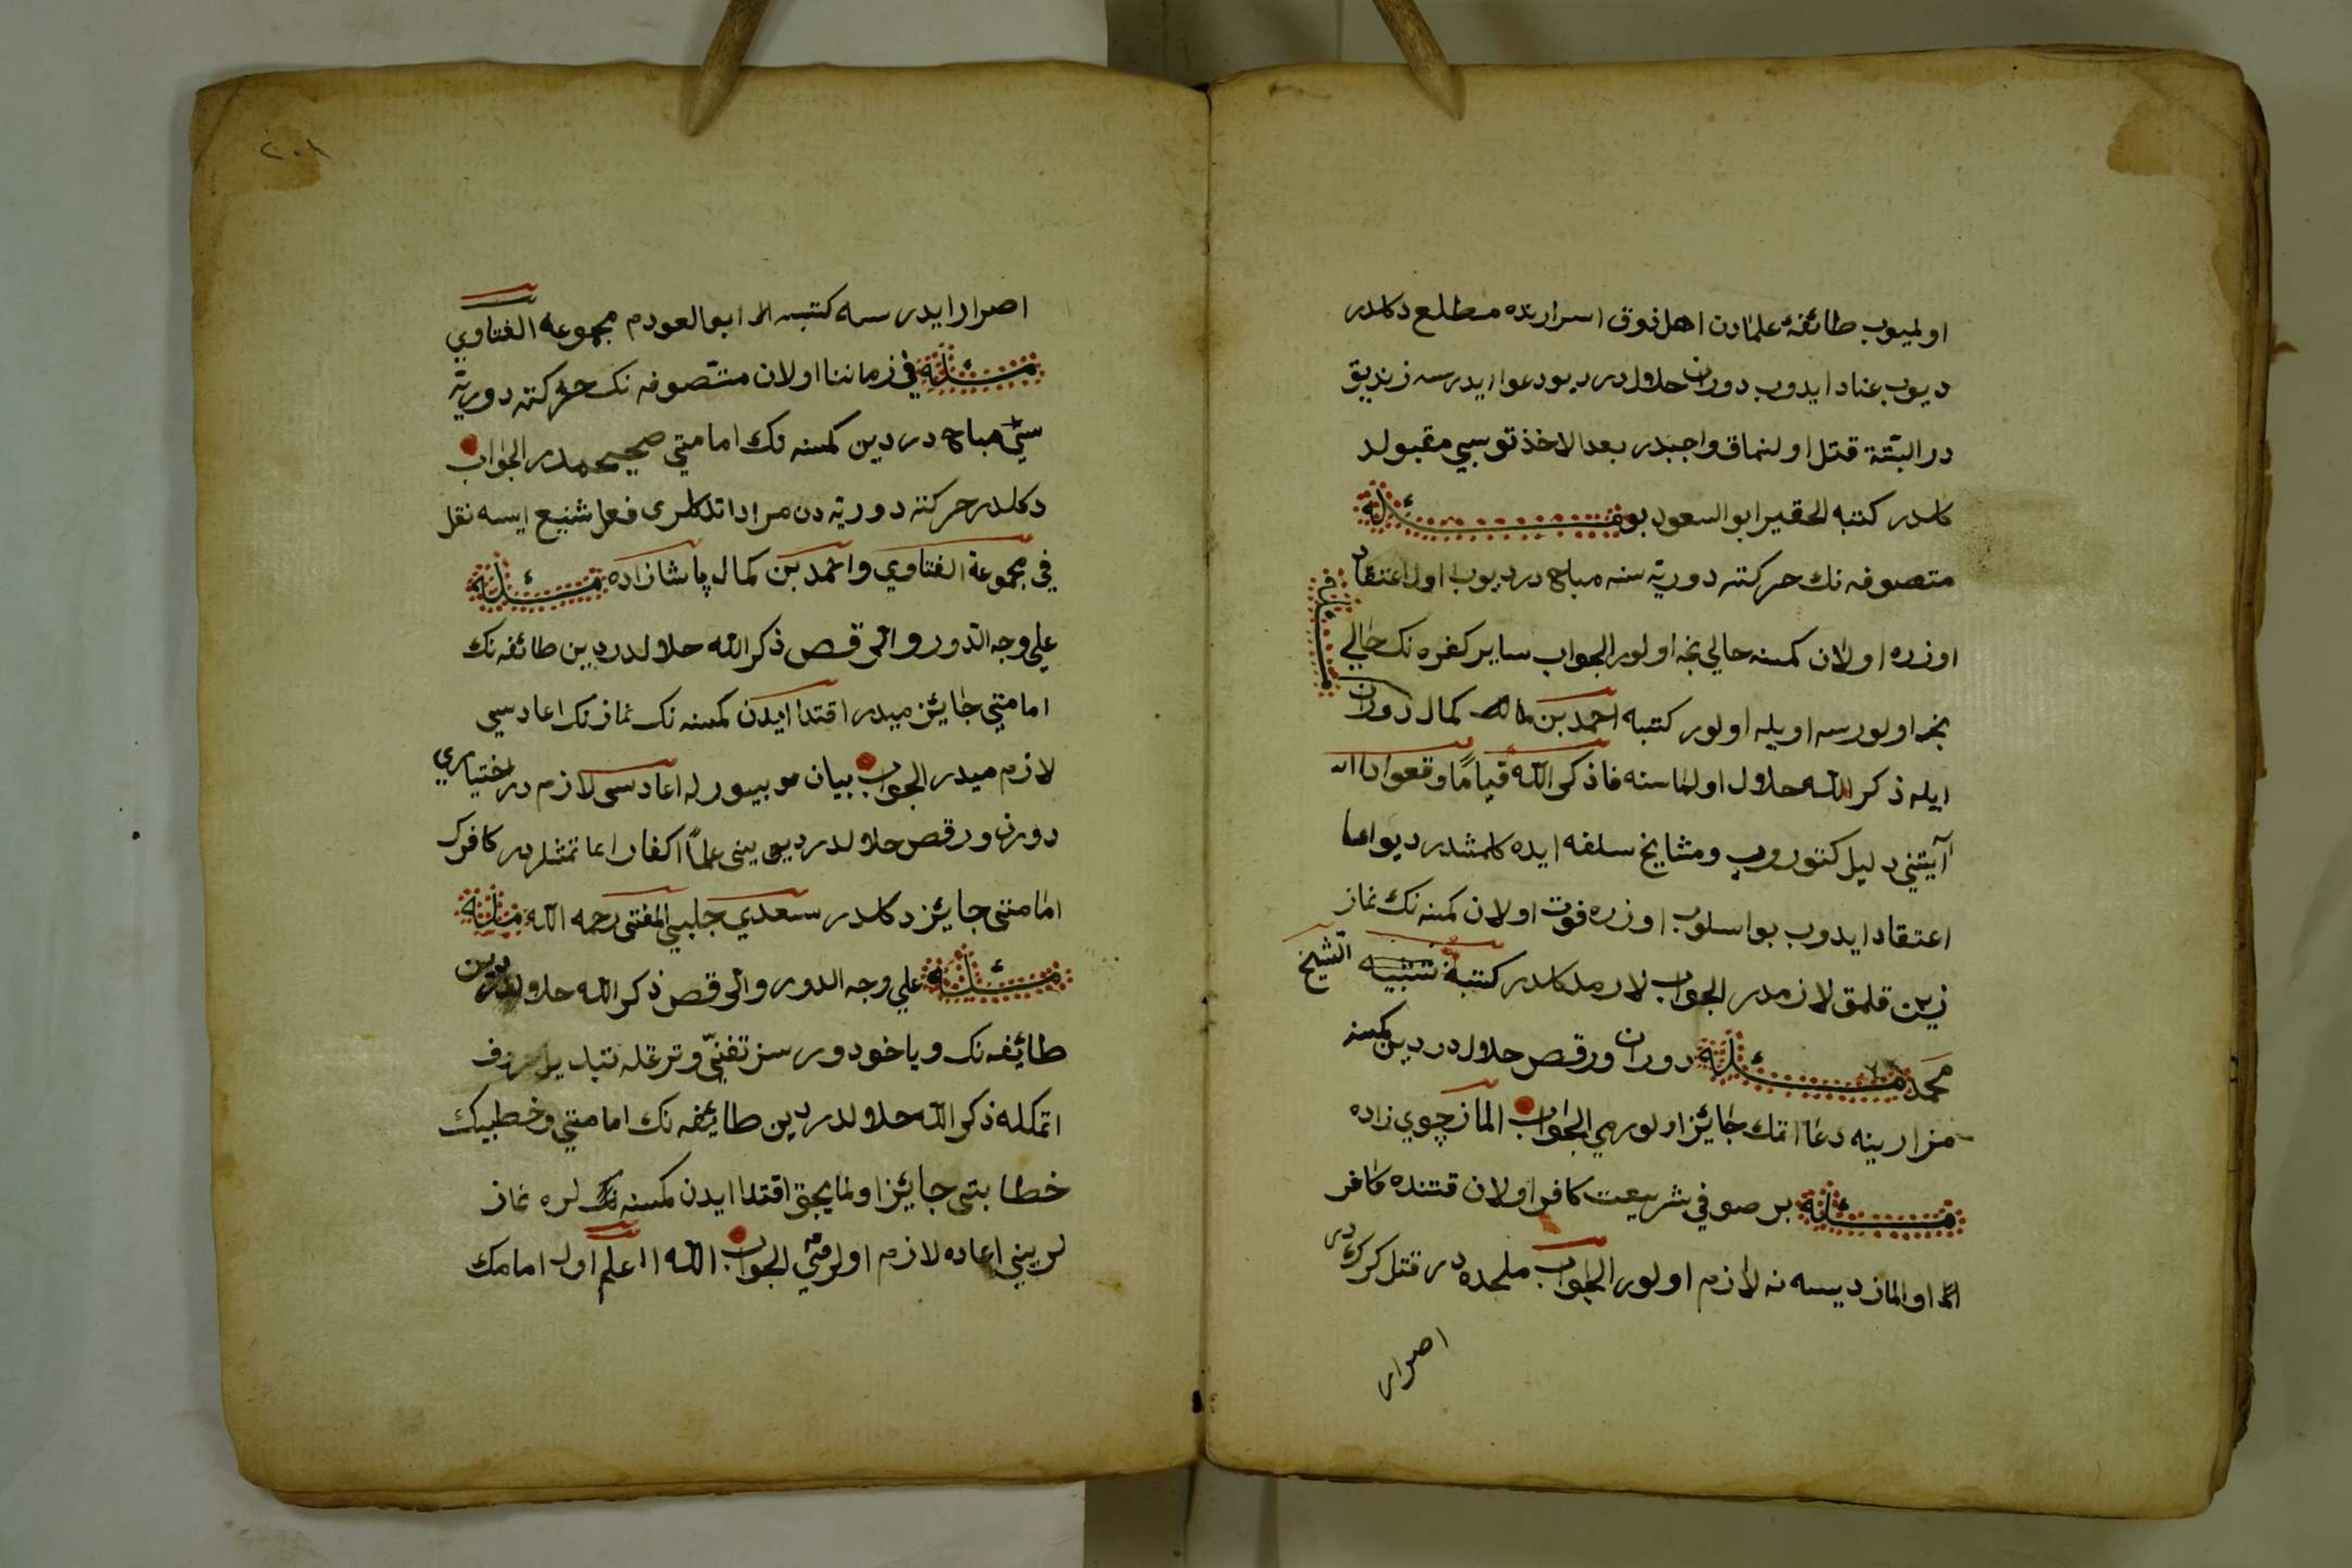 اولميوب طائفۀ علمادن اهل ذوق اسرارنده مطلع دكلدر
ديوب عناد ايدوب دوران حلاولدر ديو دعوا ايدرسه زنديق
در البتّة قتل اولنماق واجبدر بعد الاخذ توبسي مقبول د
كلدر كتبه الحقير ابو السعود بو مسئلة
متصوفه نك حركته دوريّه سنه مباح در ديوب اول اعتقاد
اوزره اولان كمسنه حالي نجه اولور الجواب ساير كفره نك حالي
نجه اولورسه اويله اولور كتبه احمد بن كمال دوران
ايله ذكر الله حلاول اولماسنه فاذكر الله قياما وقعودا
آيتني دليل كتوروب ومشايخ سلفه ايده كلمشدر ديو
اعتقاد ايدوب بو اسلوب اوزره فوت اولان كمسه نك نماز
زين قلمق لازمدر الجواب لازم دكلدر كتبه الشيخ
محمد مسئلة دوران ورقص حلاول در دين كمسنه
مزارينه دعا اتمك جائز اولورمي الجواب الماز چوي زاده
مسئلة بر صوفي شريعت كافر اولان قتنده كافر
اولماز ديسه نه لازم اولور الجواب ملحده در قتل كركدر
اصرار
٢٠١
اصرار ايدرسه كتبه ابو العود م مجموعه الفتاوي
مسئلة في زماننا اولان متصوفه نك حركته دوريّه
سيّ مباح در دين كمسنه نك امامتي صحيحمدر الجواب
دكلدر حركته دوريّه دن مراد اتدكلرى فعل شنيع ايسه نقل
في مجموعة الفتاوي واحمد بن كمال پاشا زاده مسئلة
علي وجه الدّور والرقص ذكر الله حلاولدر دين طائفه نك
امامتي جائز ميدر اقتدا ايدن كمسنه نك نمازنك اعادسي
لازم ميدر الجواب بيان بيورله اعادسى لازم در اختياري
دورن ورقص حلاولدر ديو يني علماً اكفار اتمشلردر كافرك
امامتى جايز دكلدر سعدي چلبي المفتى رحمه الله مسئلة
مسئلة علي وجه الدور والرقص ذكر الله حلاولدر دين
طائفه نك وياخود دورسز تغنّي وترغله تبديل حروف
اتمكله ذكر الله حلاولدر دين طايفه نك امامتي وخطيبك
خطابتى جايز اولمايجق اقتدا ايدن كمسنه لره نماز
لريني اعاده لازم اولرمي الجواب الله اعلم اول امامك